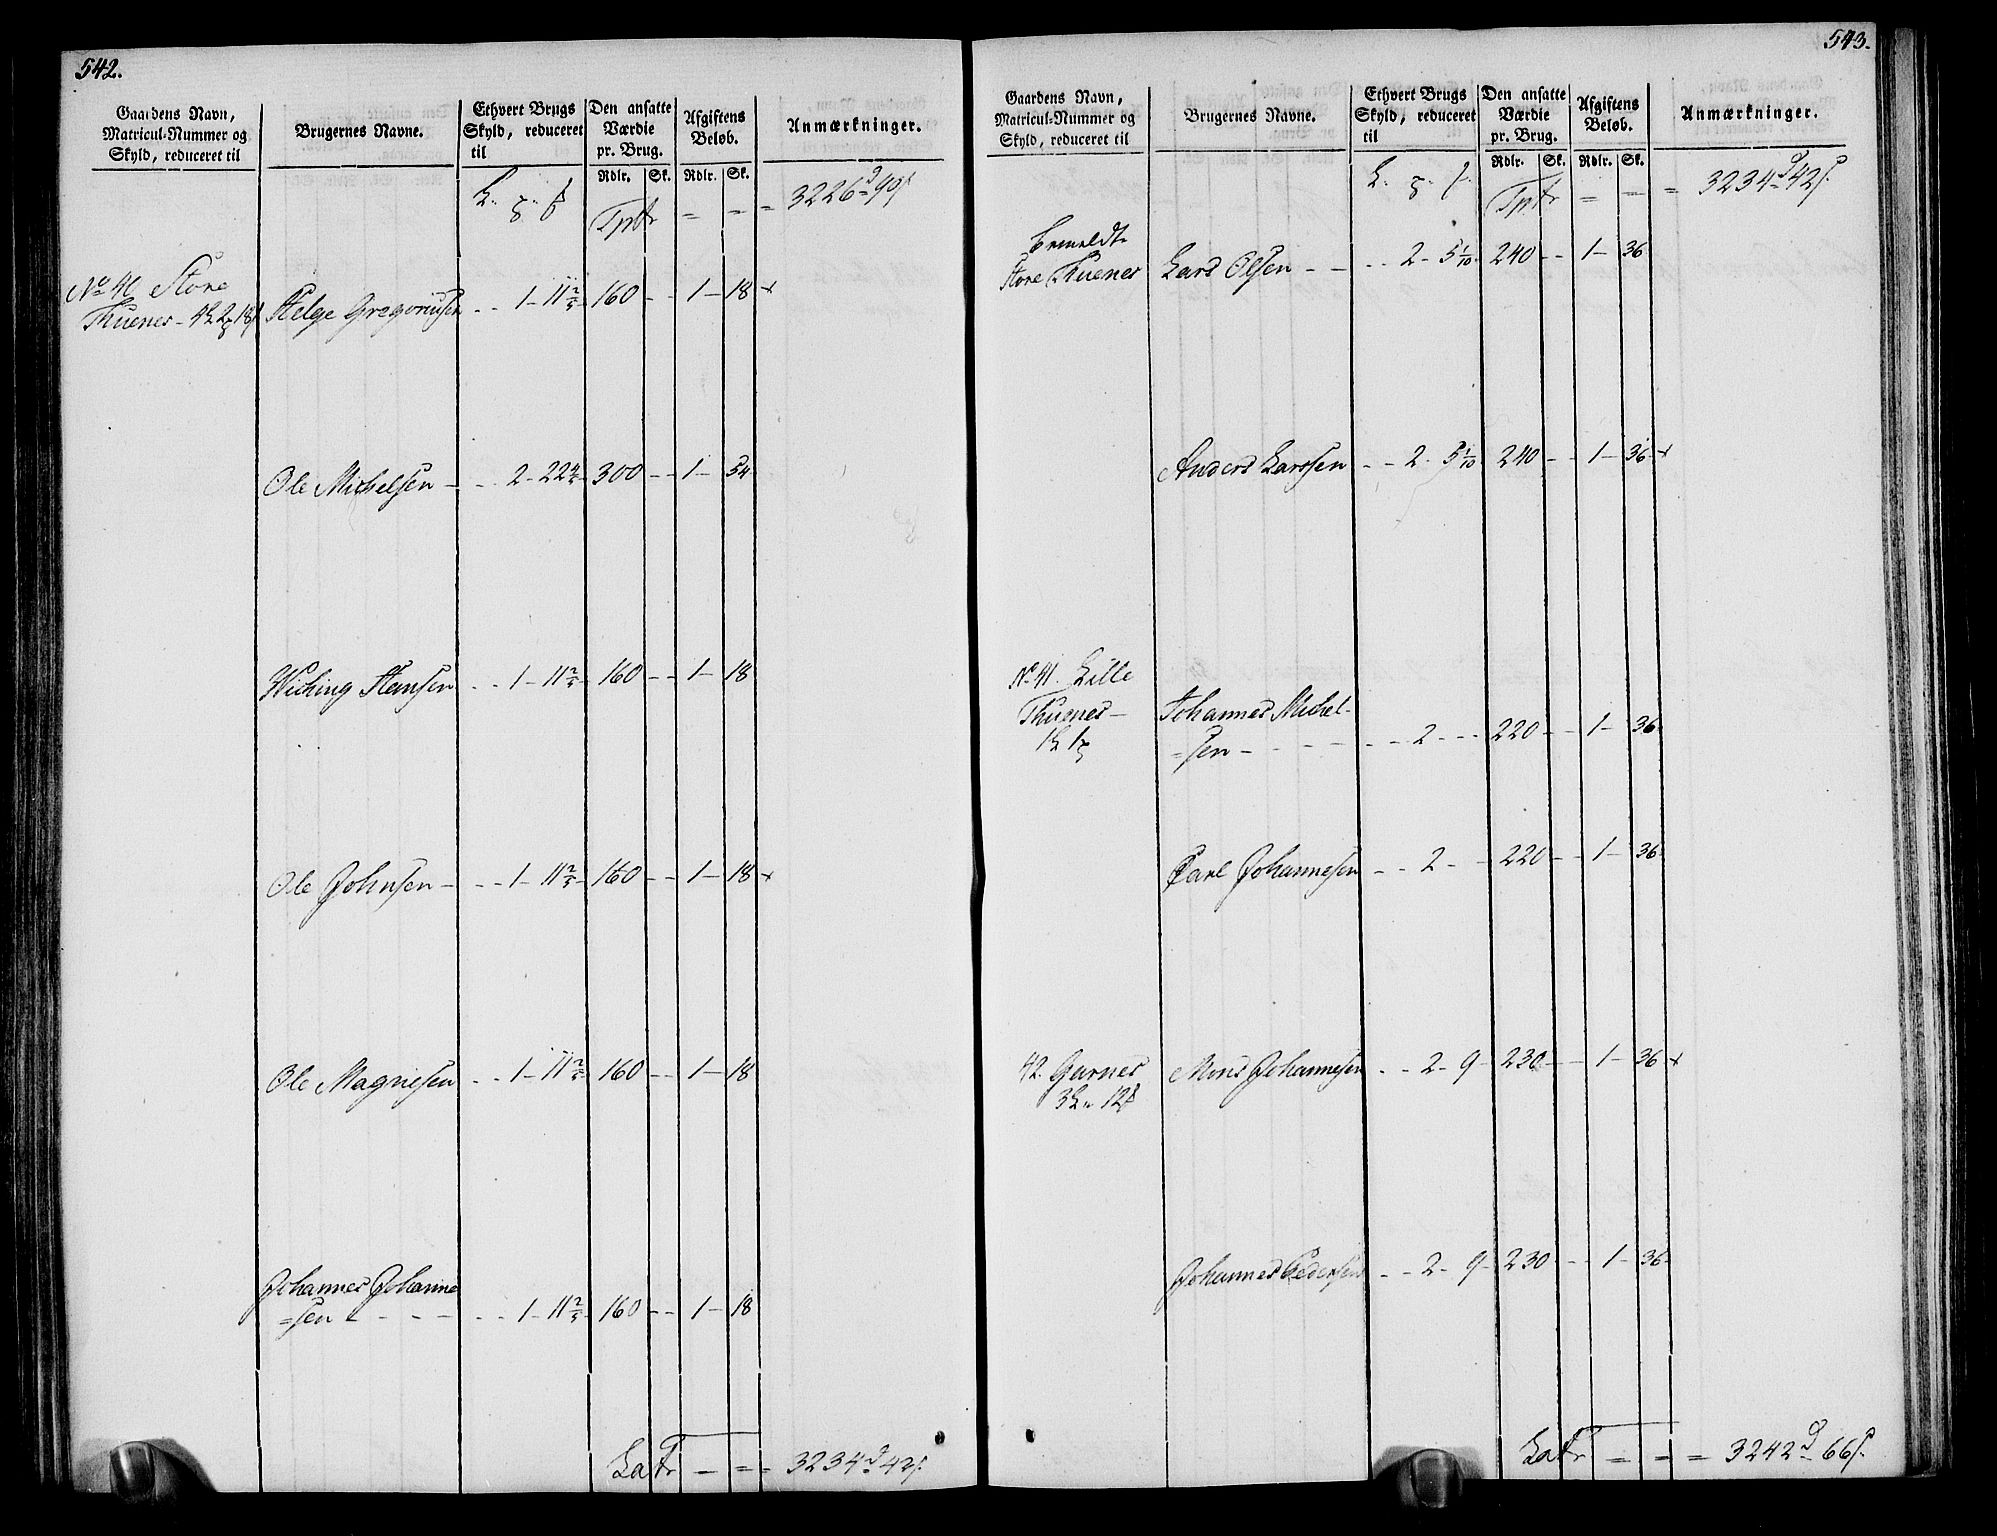 542.
Gaardens Navn,
Matricul-Nummer og
Skyld, reduceret til
Brugernes Navne.
Ethvert Brugs
Skyld, reduceret
til
Den ansatte
Værdie
pr. Brug.
Afgiftens
Beløb.
Anmærkninger.
Rdlr. Sk. Rdlr. Sk.
Tptr = = = 3226
No 40 Store
Thuenes
Helge Gregoriusen - - 1 - 11 2/5 - 160 - - 1 - 18 x
Ole Michelsen - - - 2 - 22 4/5 - 300 - - 1 - 54
Wiching Hansen - - 1 - 11 2/5 - 160 - - 1 - 18
Ole Johnsen - - - 1 - 11 2/5 - 160 - - 1 - 18 x
Ole Magnesen - - 1 - 11 2/5 - 160 - - 1 - 18
Johannes Johanne
=sen - - - - - 1 - 11 2/5 - 160 - - 1 - 18
LaTr - = = 3234 d 42 s.
543.
Gaardens Navn,
Matricul-Nummer og
Skyld, reduceret til
Brugernes Navne.
Ethvert Brugs
Skyld, reduceret
til
Den ansatte
Værdie
pr. Brug.
Afgiftens
Beløb.
Anmærkninger.
Rdlr. Sk. Rdlr. Sk.
Tptr = = = 3234 d 42 s.
bemeldte
Store Thuenes
Lars Olsen - - - - 2 - 5 1/10 - 240 - - 1 - 36
Anders Larssen - - 2 - 5 1/10 240 - - 1 - 36 - x
No 41. Lille
Thuenes -
Johannes Michel-
=sen - - - - - - 2 - - - 220 - - 1 - 36
Carl Johannesen - - 2 - - 220 - - 1 - 36
42. Garnes
Mons Johannesen - - 2 - 9 - 230 - - 1 - 36 x
Johannes Pedersen - - 2 - 9 - 230 - - 1 - 36
LaTr = = = 3242 d 66 s.